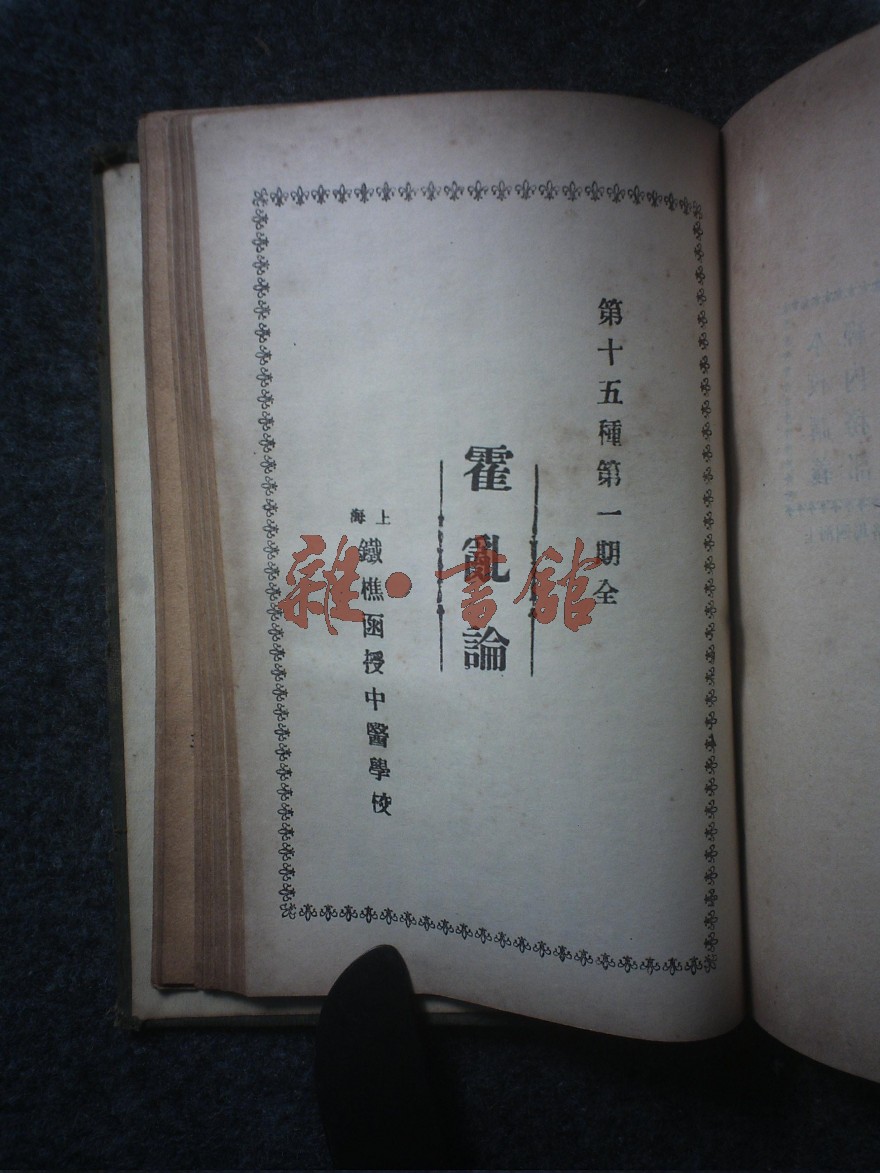 第十五種第一期全
霍亂論
上海
鐵樵函授中醫學校
雜·書館